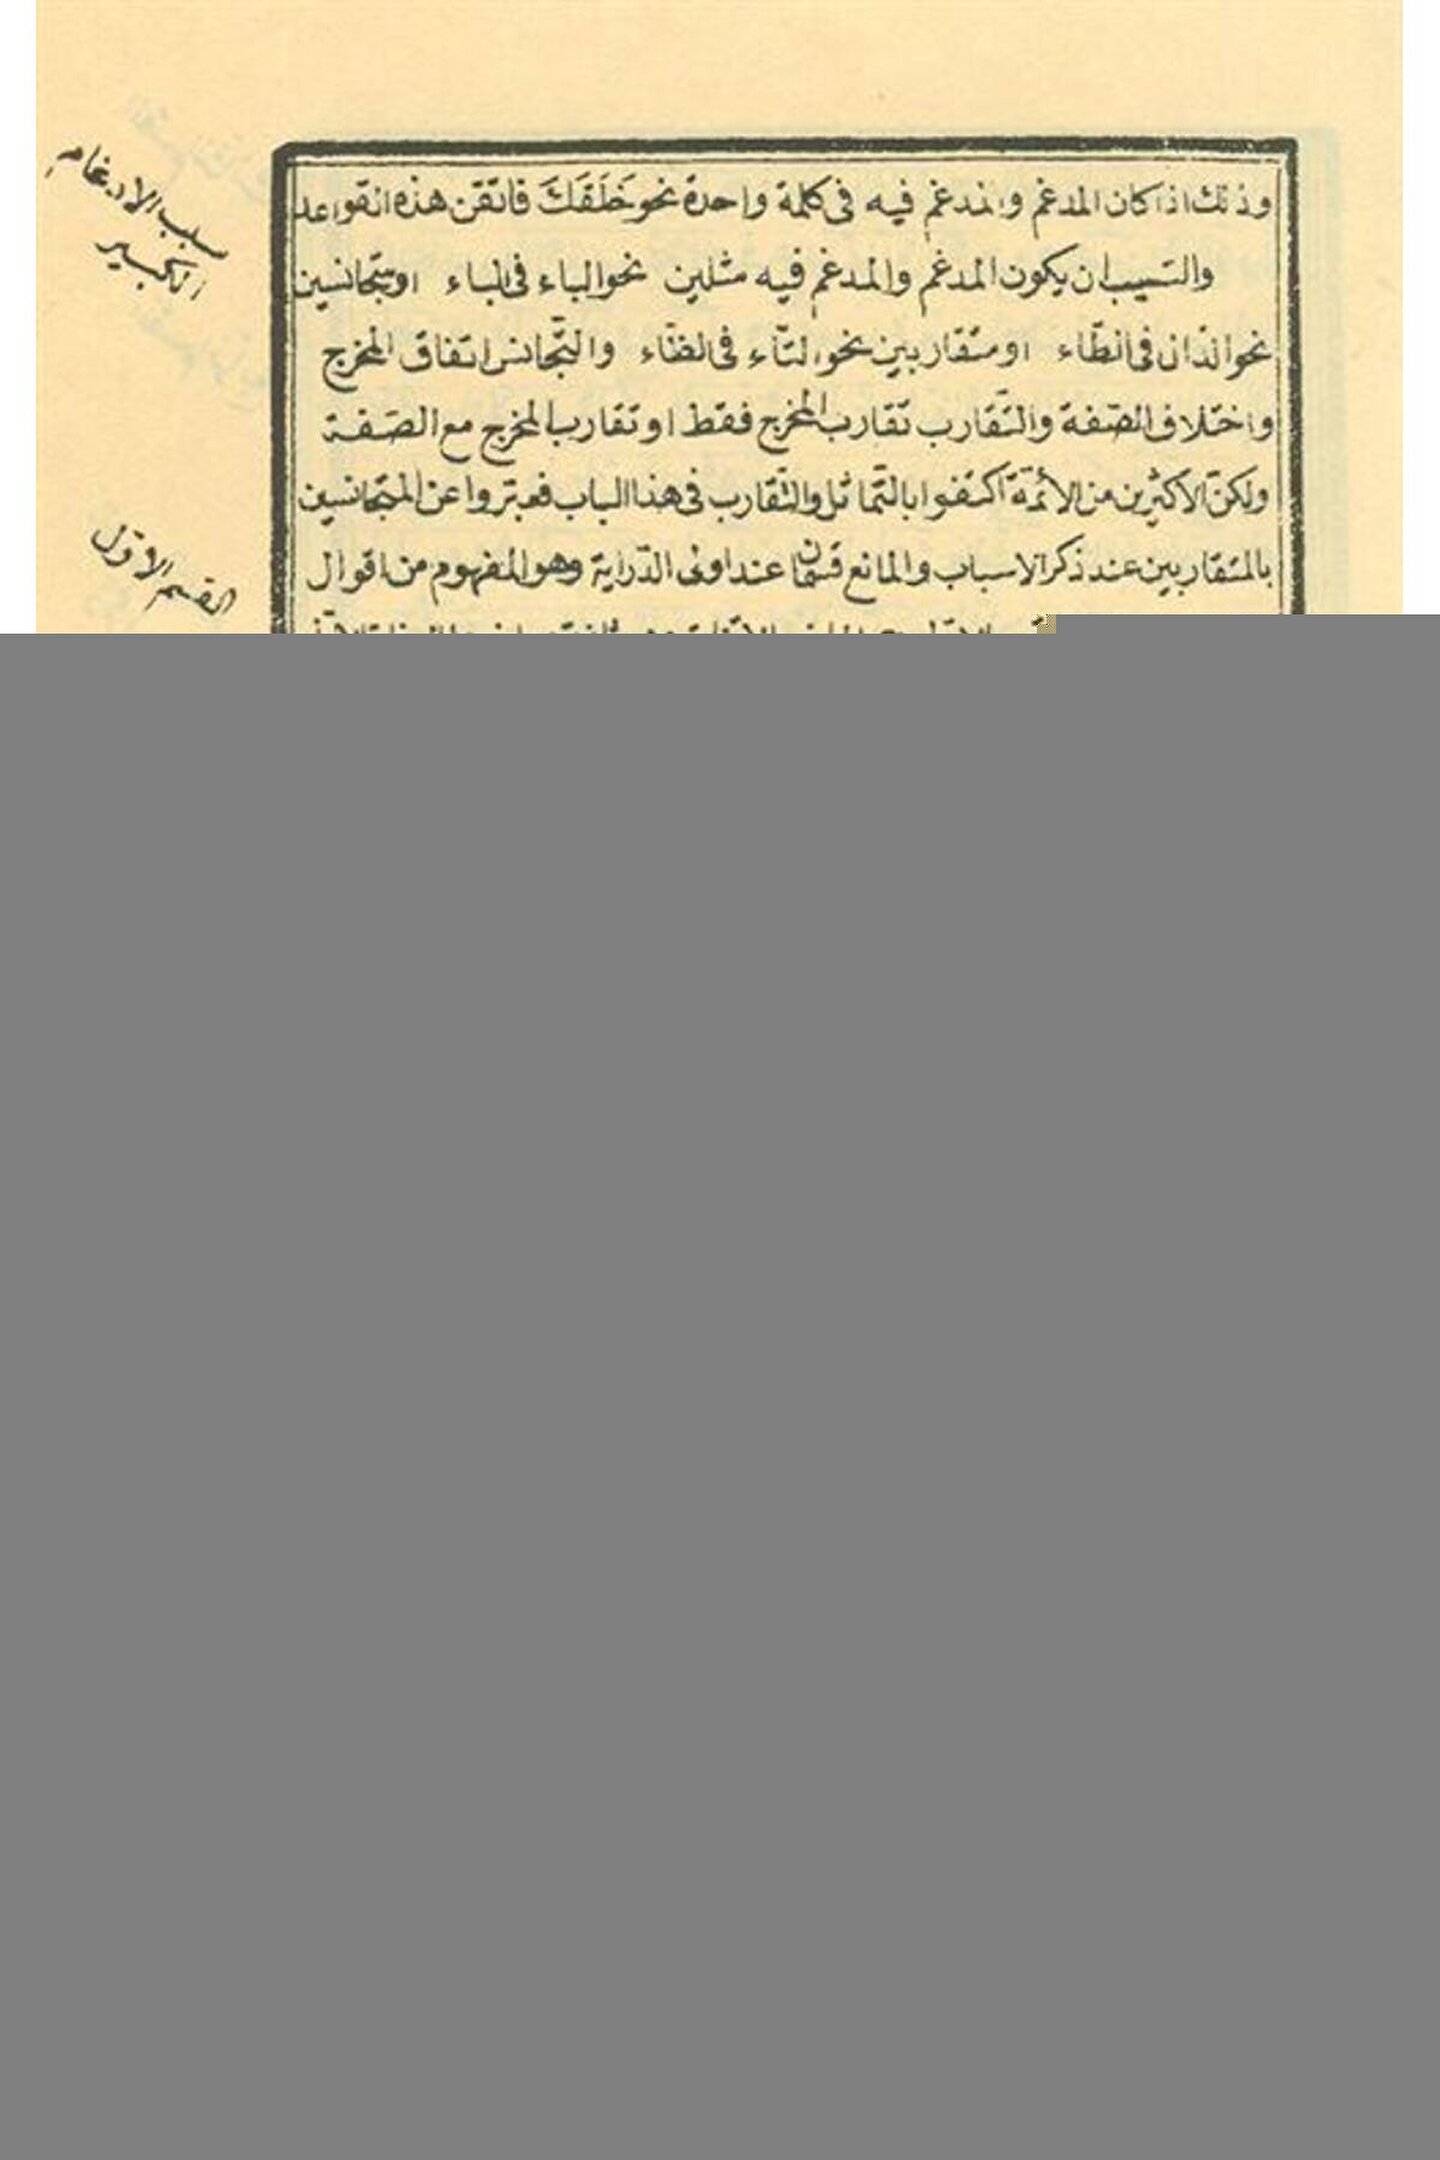 وذلك اذا كان المدغم والمدغم فيه فى كلمة واحدة نحو خَلَقَكَ فاتقن هذه القواعد
والسبب ان يكون المدغم والمدغم فيه مثلين نحو الباء فى الباء او متجانسين
نحو الدال فى الطّاء او متقاربين نحو التّاء فى الظّاء والتّجانس اتفاق المخرج
واختلاف الصّفة والتّقارب تقارب المخرج فقط او تقارب المخرج مع الصّفة
ولكنّ الاكثرين من الأئمّة اكتفوا بالتّماثل والتّقارب فى هذا الباب فعبّروا عن المتجانسين
بالمتقاربين عند ذكر الاسباب والمانع قسمان عند اولى الدّراية وهو المفهوم من اقوال
سبب الادغام
الكبير
القسم الاوّل